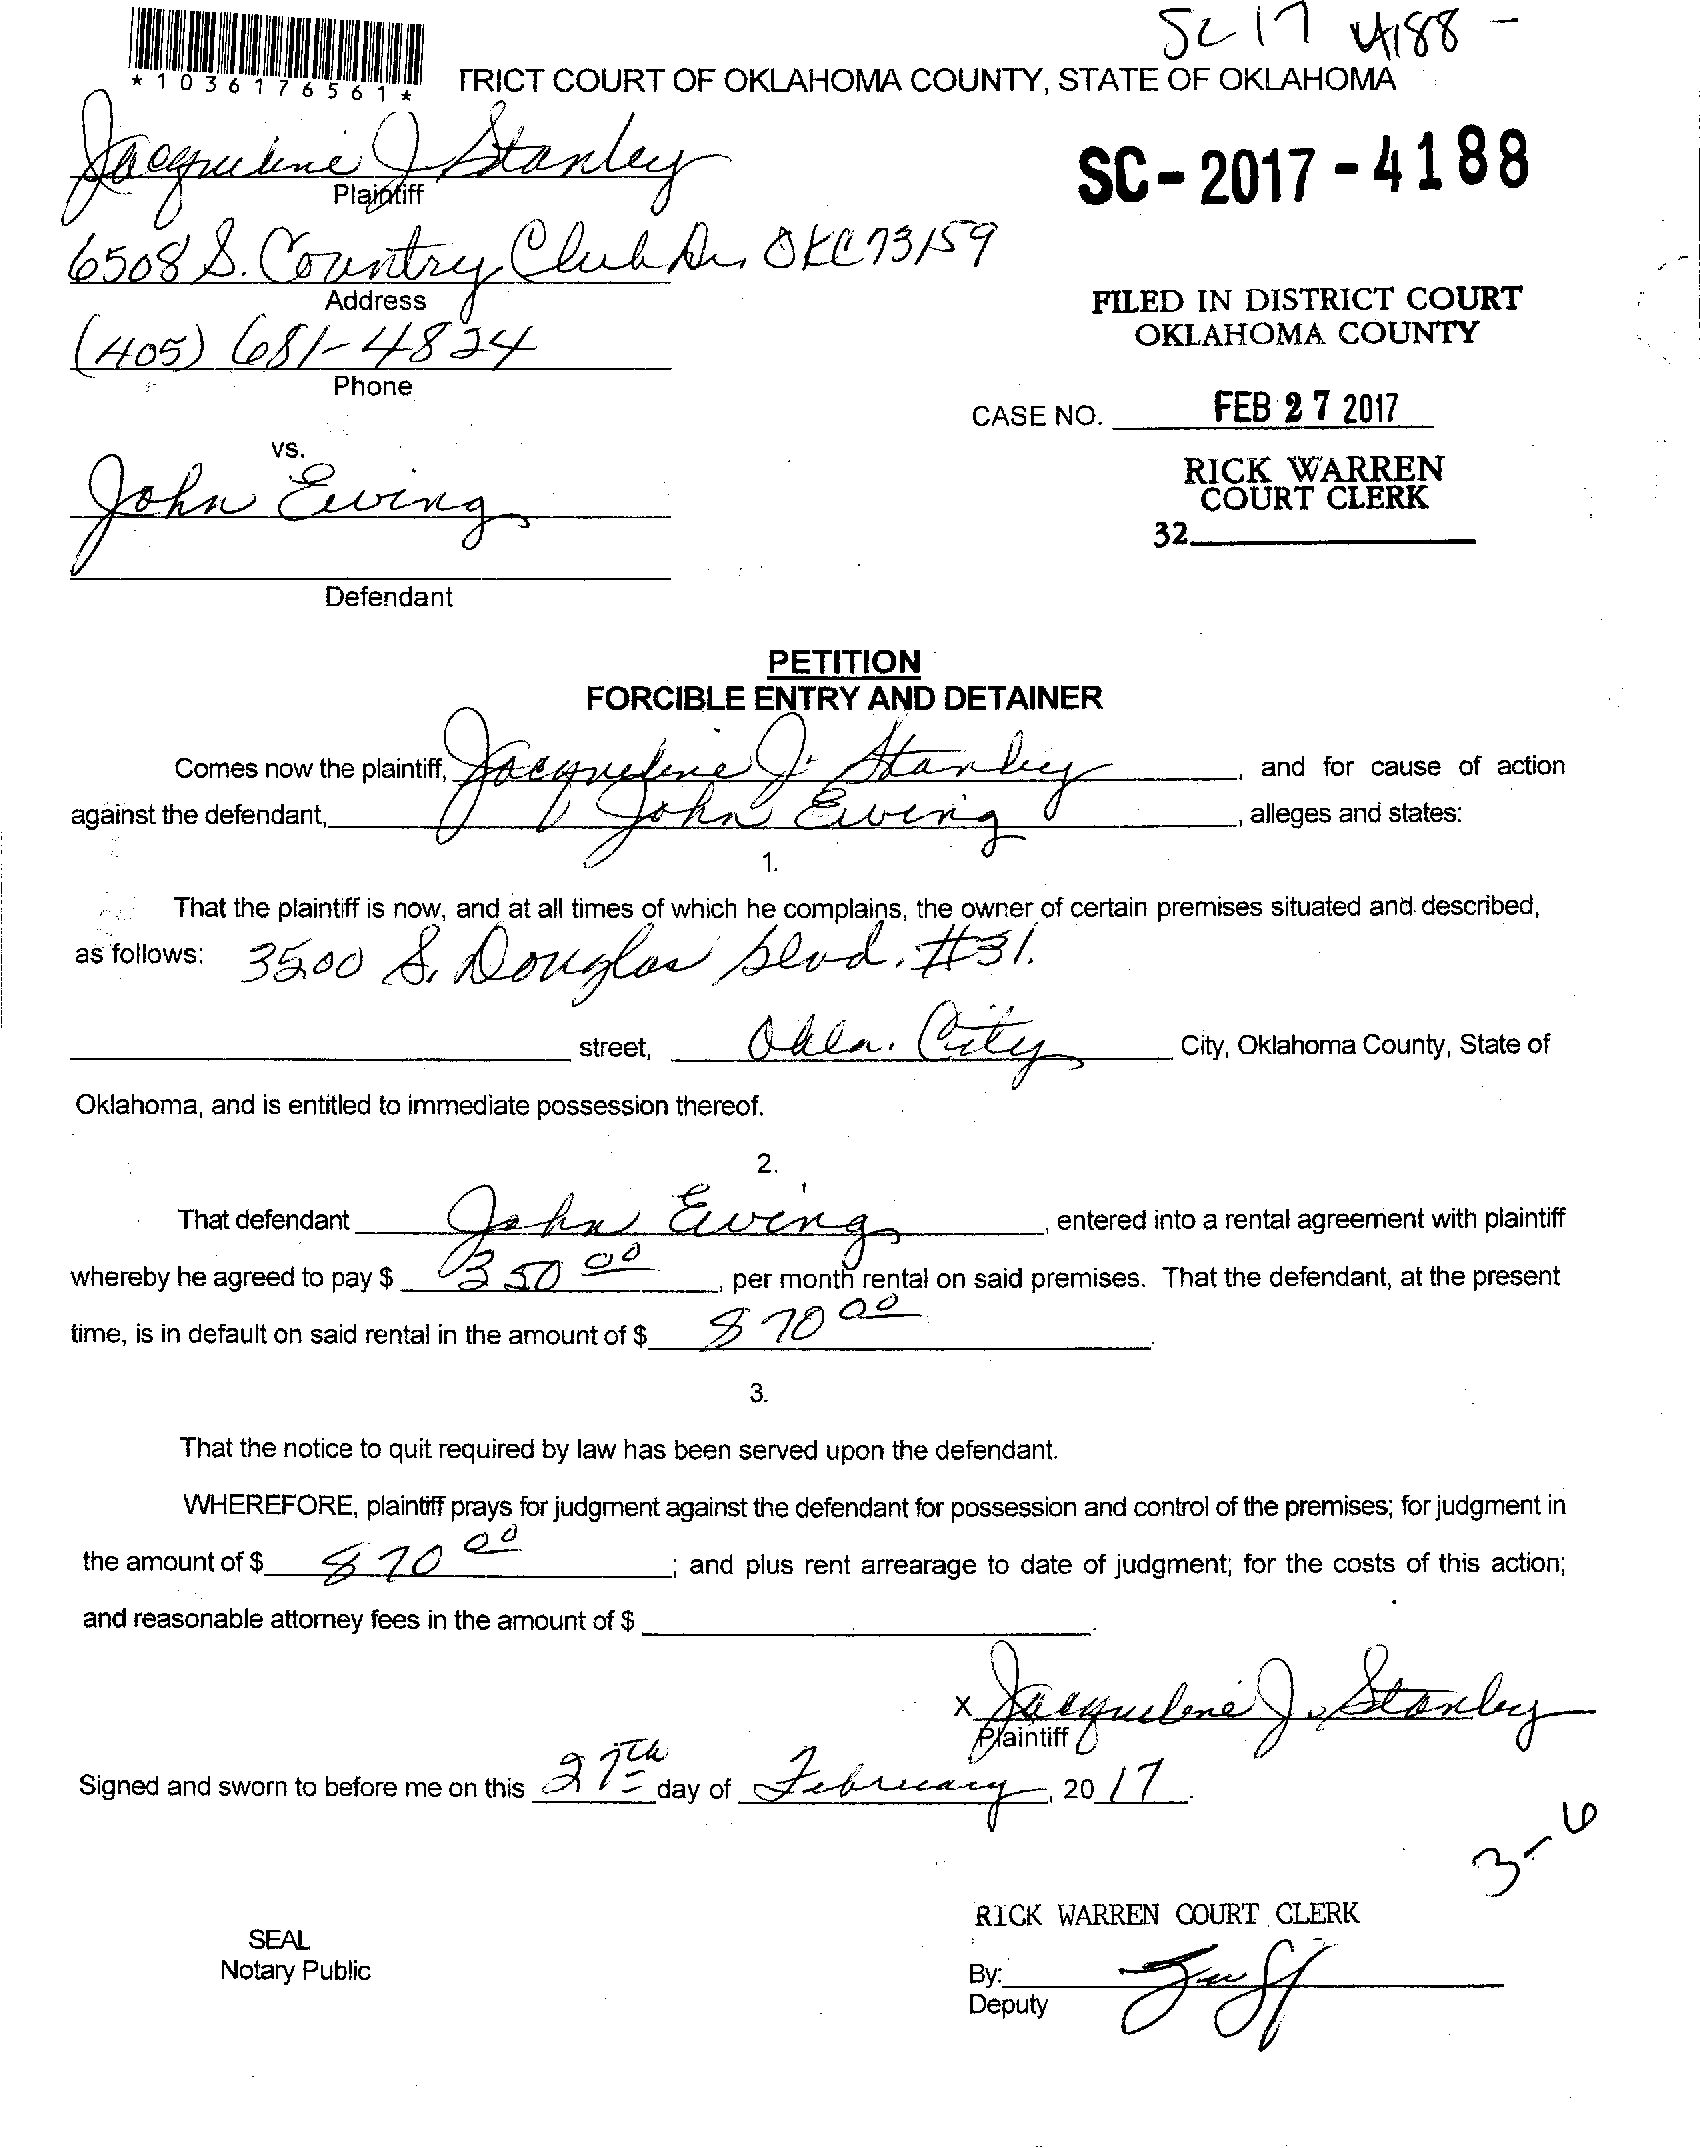 SC 17 4188 -
*1036176561*
TRICT COURT OF OKLAHOMA COUNTY, STATE OF OKLAHOMA
Jacqueline J Stanley
Plaintiff
SC-2017-4188
6508 S. Country Club Dr. OKC 73159
Address
FILED IN DISTRICT COURT
OKLAHOMA COUNTY
(405) 681-4824
Phone
CASE NO. FEB 27 2017
vs.
RICK WARREN
COURT CLERK
John Ewing
32
Defendant
PETITION
FORCIBLE ENTRY AND DETAINER
Comes now the plaintiff, Jacqueline J. Stanley, and for cause of action
against the defendant, John Ewing, alleges and states:
1.
That the plaintiff is now, and at all times of which he complains, the owner of certain premises situated and described,
as follows: 3500 S. Douglas blvd. #31.
street, Okla. City City, Oklahoma County, State of
Oklahoma, and is entitled to immediate possession thereof.
2.
That defendant John Ewing, entered into a rental agreement with plaintiff
whereby he agreed to pay $ 350 00, per month rental on said premises. That the defendant, at the present
time, is in default on said rental in the amount of $ 870 00.
3.
That the notice to quit required by law has been served upon the defendant.
WHEREFORE, plaintiff prays for judgment against the defendant for possession and control of the premises; for judgment in
the amount of $ 870 00; and plus rent arrearage to date of judgment; for the costs of this action;
and reasonable attorney fees in the amount of $ .
x Jacqueline J. Stanley
Plaintiff
Signed and sworn to before me on this 27th day of February, 2017.
3-6
RICK WARREN COURT CLERK
SEAL
Notary Public
By:
Deputy